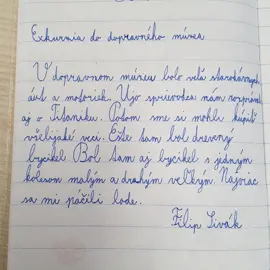 Exkurzia do dopravného múzea
V dopravnom múzeu bolo veľa starodávnych
áut a motoriek. Ujo sprievodca nám rozprával
aj o Titaniku. Potom sme si mohli kúpiť
všelijaké veci. Ešte tam bol drevený
bycikel Bol tam aj bycikel s jedným
kolesom malým a druhým veľkým. Najviac
sa mi páčili lode.
Filip Sivák